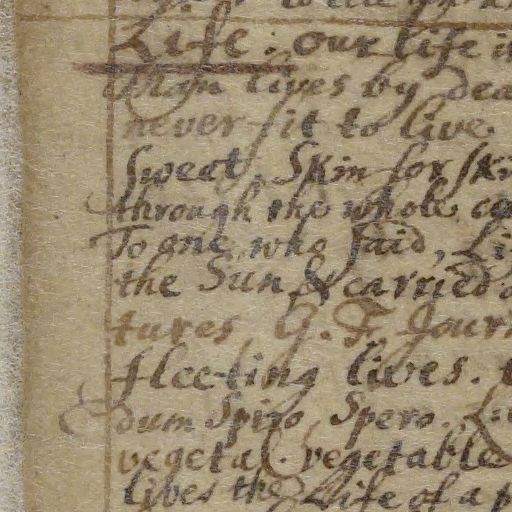 to live
Life. Our life i
Man lives by dea
never fit to live
Sweat, Skin for ski
through the whole co
To one who said, Li
the Sun & carried
tures, G. F. Jour
fleeting lives.
dum Spiro, Spero. Li
vegetal. vegetable
lives the Life of a p